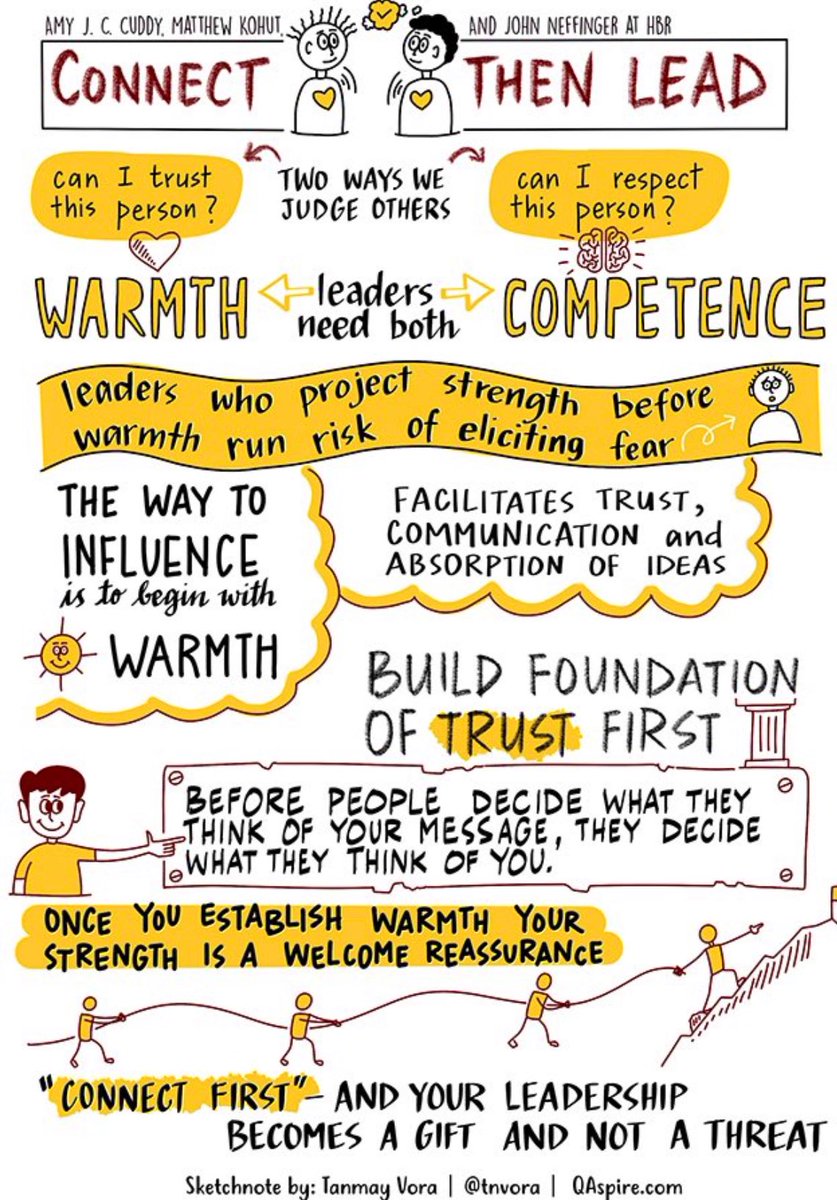 AMY J. C. CUDDY, MATTHEW KOHUT, AND JOHN NEFFINGER AT HBR
CONNECT THEN LEAD
can I trust
this person?
TWO WAYS WE
JUDGE OTHERS
can I respect
this person?
WARMTH
leaders
need both
COMPETENCE
leaders who project strength before
warmth run risk of eliciting fear
THE WAY TO
INFLUENCE
is to begin with
WARMTH
FACILITATES TRUST,
COMMUNICATION and
ABSORPTION OF IDEAS
BUILD FOUNDATION
OF TRUST FIRST
BEFORE PEOPLE DECIDE WHAT THEY
THINK OF YOUR MESSAGE, THEY DECIDE
WHAT THEY THINK OF YOU.
ONCE YOU ESTABLISH WARMTH YOUR
STRENGTH IS A WELCOME REASSURANCE
"CONNECT FIRST" – AND YOUR LEADERSHIP
BECOMES A GIFT AND NOT A THREAT
Sketchnote by: Tanmay Vora | @tnvora | QAspire.com